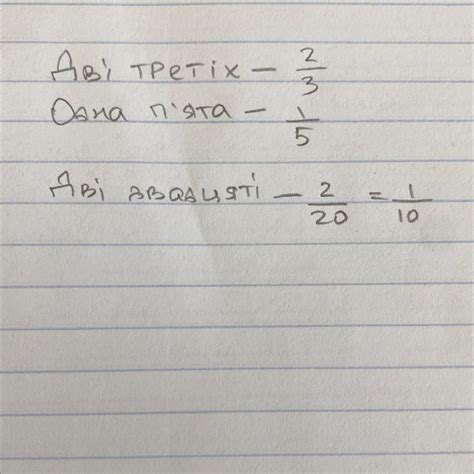 Дві третіх – 2/3
Одна п'ята – 1/5
Дві двадцяті – 2/20 = 1/10